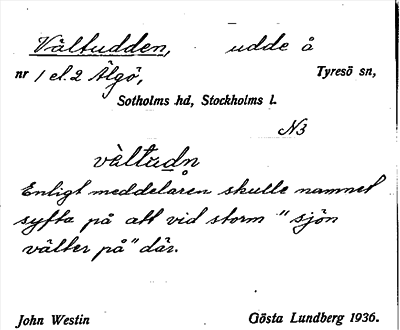 Vältudden, udde å
nr 1 el. 2 Älgö, Tyresö sn,
Sotholms hd, Stockholms l.
N3
vàltu̲dn̥
Enligt meddelaren skulle namnet
syfta på att vid storm "sjön
välter på" där.
John Westin Gösta Lundberg 1936.